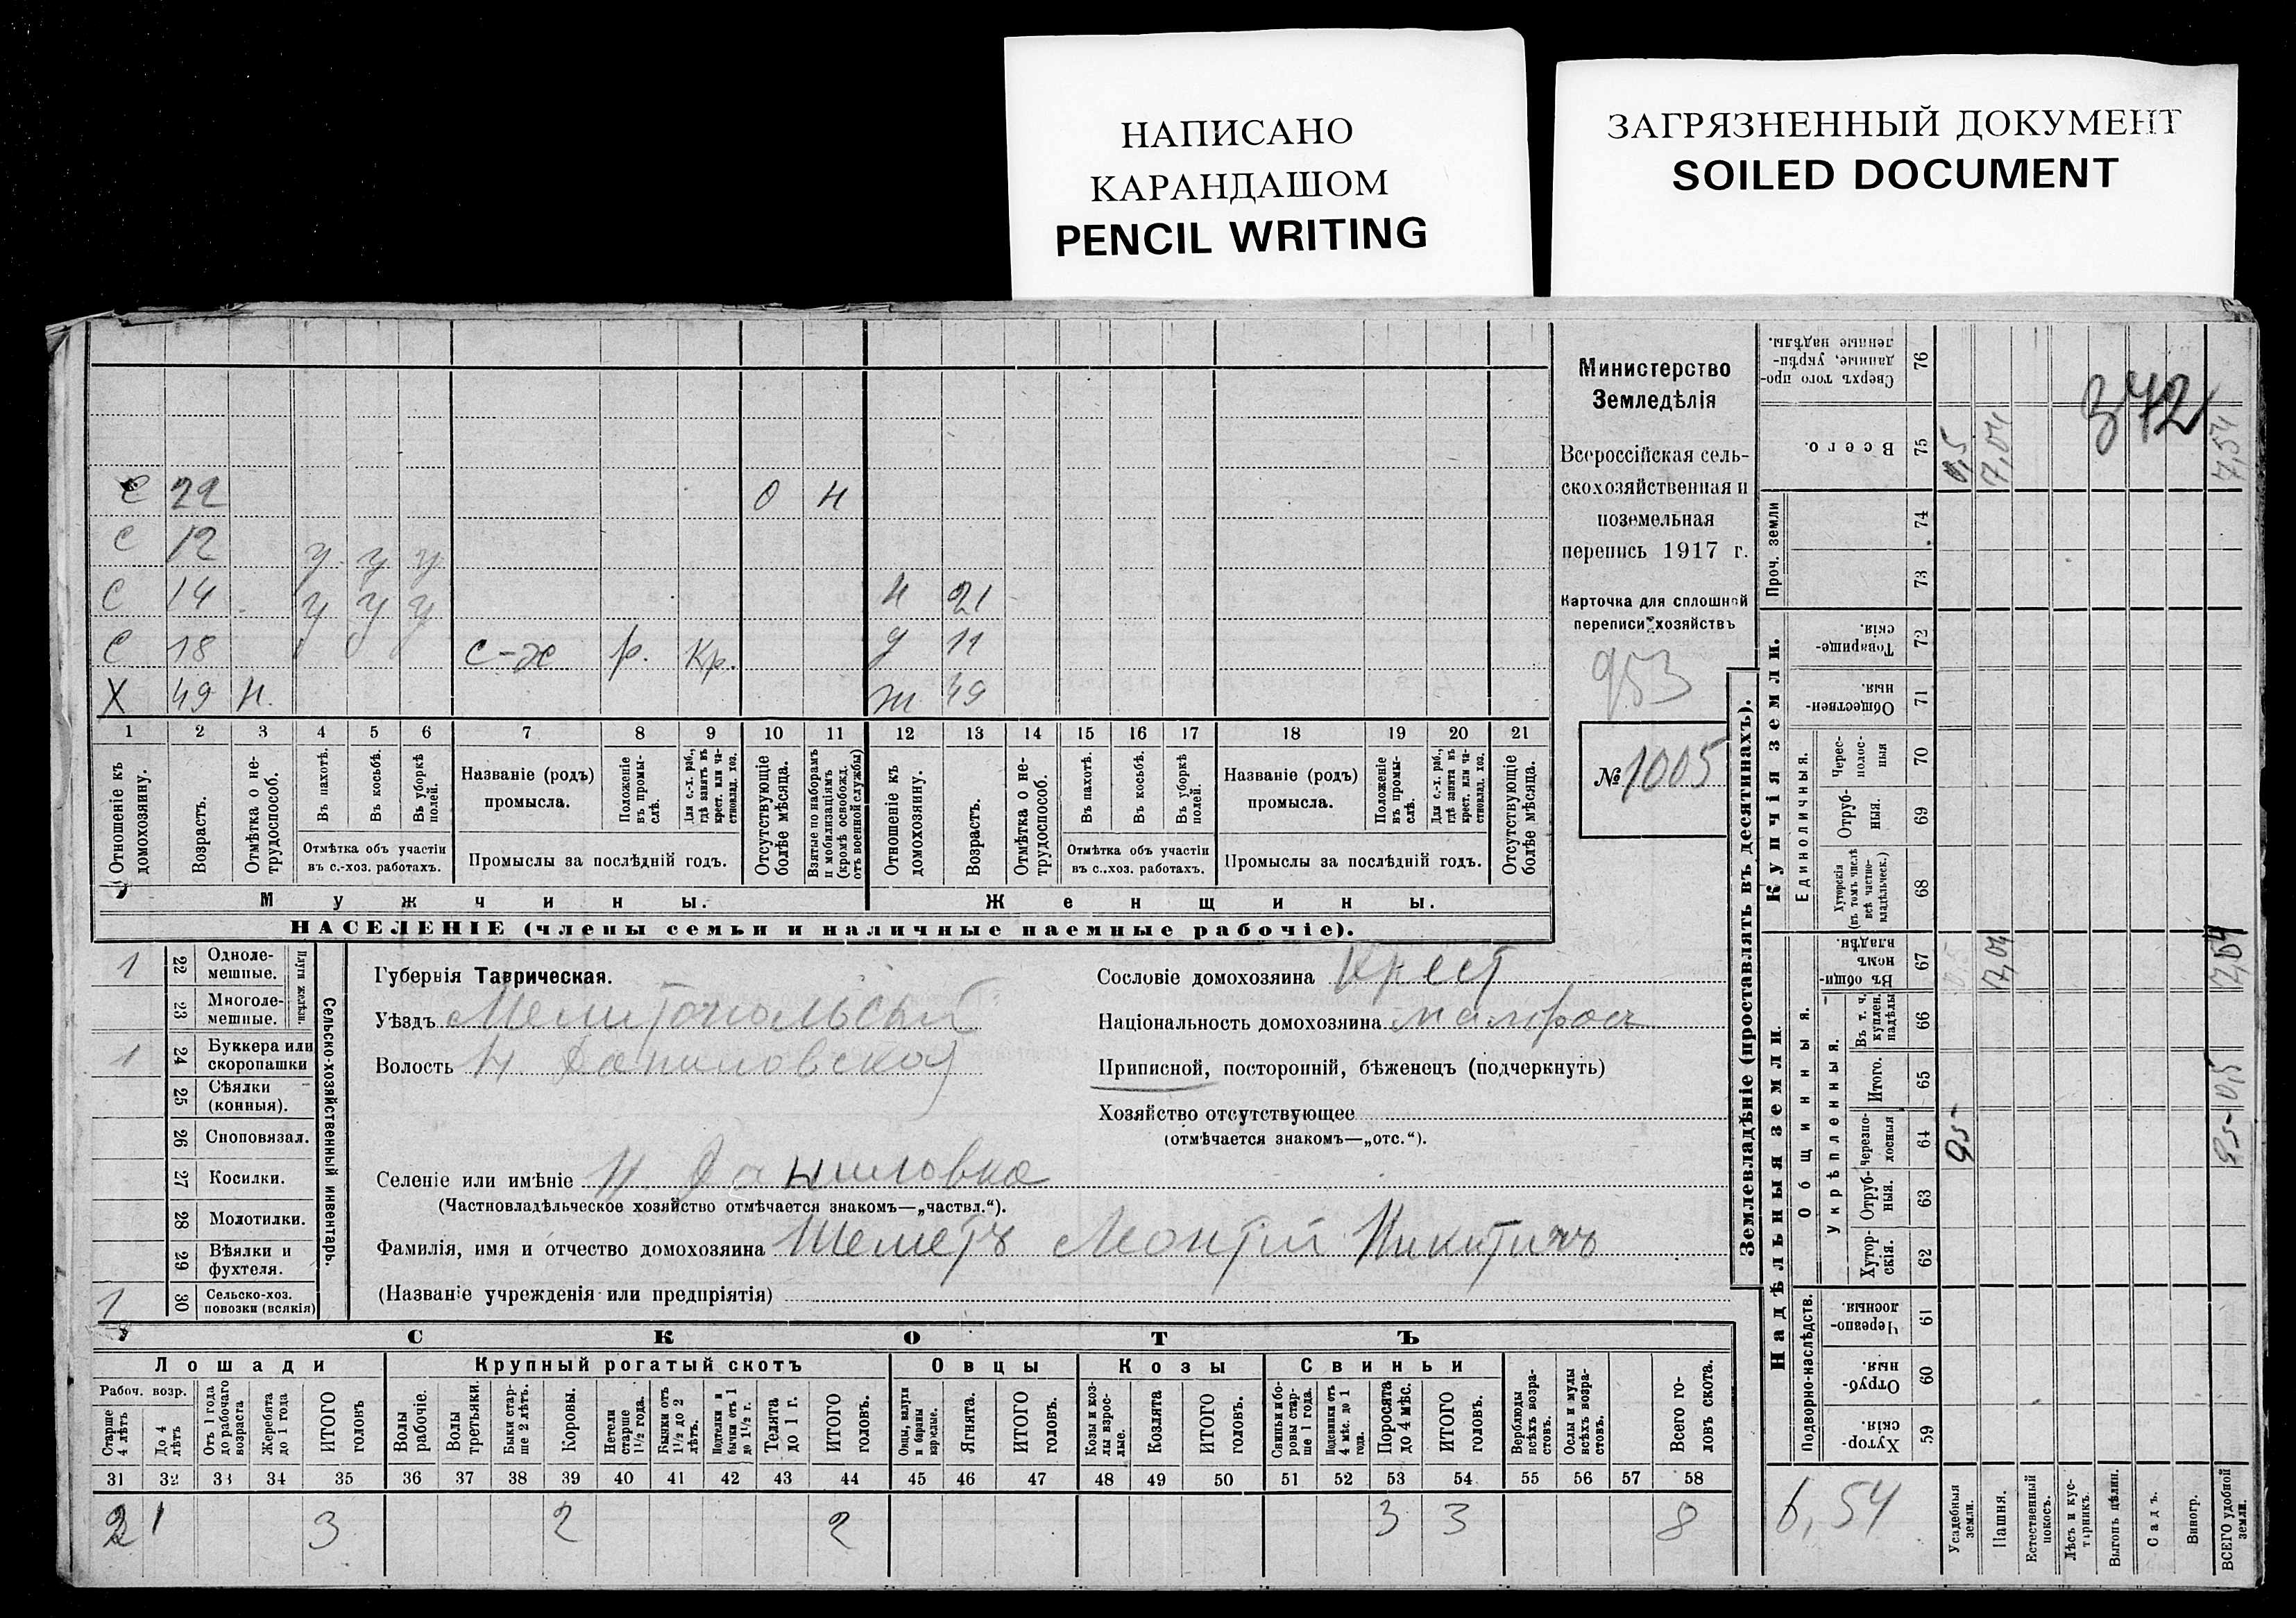 НАПИСАНО
КАРАНДАШОМ
PENCIL WRITING
ЗАГРЯЗНЕННЫЙ ДОКУМЕНТ
SOILED DOCUMENT
С 22 О Н
С 12 у у у
С 14 у у у Н 21
С 18 с-х р. Кр. д 11
Х 49 Н. ж 49
1 2 3 4 5 6 7 8 9 10 11 12 13 14 15 16 17 18 19 20 21
Отношеніе къ домохозяину.
Возрастъ.
Отмѣтка о нетрудоспособ.
Въ пахотѣ.
Въ косьбѣ.
Въ уборкѣ полей.
Отмѣтка объ участіи
въ с.-хоз. работахъ.
Названіе (родъ)
промысла.
Положеніе въ промыслѣ.
Для с.-х. раб., гдѣ занятъ въ крест. или частновлад. хоз.
Промыслы за послѣдній годъ.
Отсутствующіе болѣе мѣсяца.
Взятые по наборамъ и мобилизаціямъ (кромѣ освобожд. отъ военной службы)
Отношеніе къ домохозяину.
Возрастъ.
Отмѣтка о нетрудоспособ.
Въ пахотѣ.
Въ косьбѣ.
Въ уборкѣ полей.
Отмѣтка объ участіи
въ с..хоз. работахъ.
Названіе (родъ)
промысла.
Положеніе въ промыслѣ.
Для с.-х. раб., гдѣ занята въ крест. или частновлад. хоз.
Промыслы за послѣдній годъ.
Отсутствующіе болѣе мѣсяца.
Мужчины.
Женщины.
НАСЕЛЕНІЕ (члены семьи и наличные наемные рабочіе).
Министерство
Земледѣлія
Всероссійская сель-
скохозяйственная и
поземельная
перепись 1917 г.
Карточка для сплошной
переписи хозяйствъ
953
№ 1005
1 22 Одноле-
мешные.
23 Многоле-
мешные.
Плуги желѣзн.
1 24 Буккера или
скоропашки
25 Сѣялки
(конныя).
26 Сноповязал.
27 Косилки.
28 Молотилки.
29 Вѣялки и
фухтеля.
1 30 Сельско-хоз.
повозки (всякія)
Сельско-хозяйственный инвентарь.
Губернія Таврическая.
Уѣздъ Мелитопольскій
Волость Н. Даниловская
Селеніе или имѣніе Н. Даниловка
(Частновладѣльческое хозяйство отмѣчается знакомъ—„частвл.“).
Фамилія, имя и отчество домохозяина Шеметъ Леонтій Никитичъ
(Названіе учрежденія или предпріятія)
Сословіе домохозяина Крест
Національность домохозяина малорос
Приписной, посторонній, бѣженецъ (подчеркнуть)
Хозяйство отсутствующее
(отмѣчается знакомъ—„отс.“).
СКОТЪ
Лошади
Крупный рогатый скотъ
Овцы
Козы
Свиньи
Рабоч. возр.
Старше 4 лѣтъ
До 4 лѣтъ
Отъ 1 года до рабочаго возраста
Жеребята до 1 года
ИТОГО головъ
Волы рабочіе.
Волы третьяки.
Быки старше 2 лѣтъ.
Коровы.
Нетели старше 1½ года.
Бычки отъ 1½ до 2 лѣтъ.
Подтелки и бычки отъ 1 до 1½ г.
Телята до 1 г.
ИТОГО головъ.
Овцы, валухи и бараны взрослые.
Ягнята.
ИТОГО головъ.
Козы и козлы взрослые.
Козлята
ИТОГО головъ.
Свиньи и боровы старше 1 года.
Подсвинки отъ 4 мѣс. до 1 года.
Поросята до 4 мѣс.
ИТОГО головъ.
Верблюды всѣхъ возрастовъ.
Ослы и мулы всѣхъ возрастовъ.
Всего головъ скота.
31 32 33 34 35 36 37 38 39 40 41 42 43 44 45 46 47 48 49 50 51 52 53 54 55 56 57 58
2 1 3 2 2 3 3 8
Землевладѣніе (проставлять въ десятинахъ).
Надѣльныя земли.
Купчія земли.
Проч. земли
Подворно-наслѣдств.
Общинныя.
Укрѣпленныя.
Единоличныя.
Сверхъ того проданные, укрѣпленные надѣлы. 76
Всего. 75
74
73
Товарищескія. 72
Общественныя 71
Чересполосныя 70
Отрубныя. 69
Хуторскія (въ томъ числѣ всѣ частновладѣльческ.) 68
Въ общинномъ владѣн. 67
Въ т. ч. куплен. надѣлы 66
Итого. 65
Черезполосныя 64
Отрубныя. 63
Хуторскія. 62
Черезполосныя. 61
Отрубныя. 60
Хуторскія. 59
372
0,5
7,04
7,54
7,04
7,04
0,5
6,54
Усадебныя земли.
Пашня.
Естественный покосъ.
Лѣсъ и кустарникъ.
Выгонъ цѣлин.
Садъ.
Виногр.
ВСЕГО удобной земли.